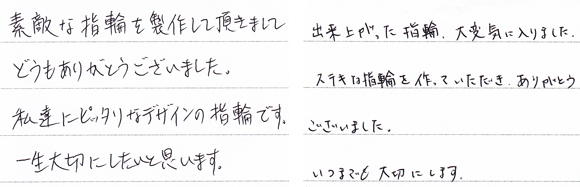 素敵な指輪を製作して頂きまして
どうもありがとうございました。
私達にピッタリなデザインの指輪です。
一生大切にしたいと思います。
出来上がった指輪、大変気に入りました。
ステキな指輪を作っていただき、ありがとう
ございました。
いつまでも大切にします。